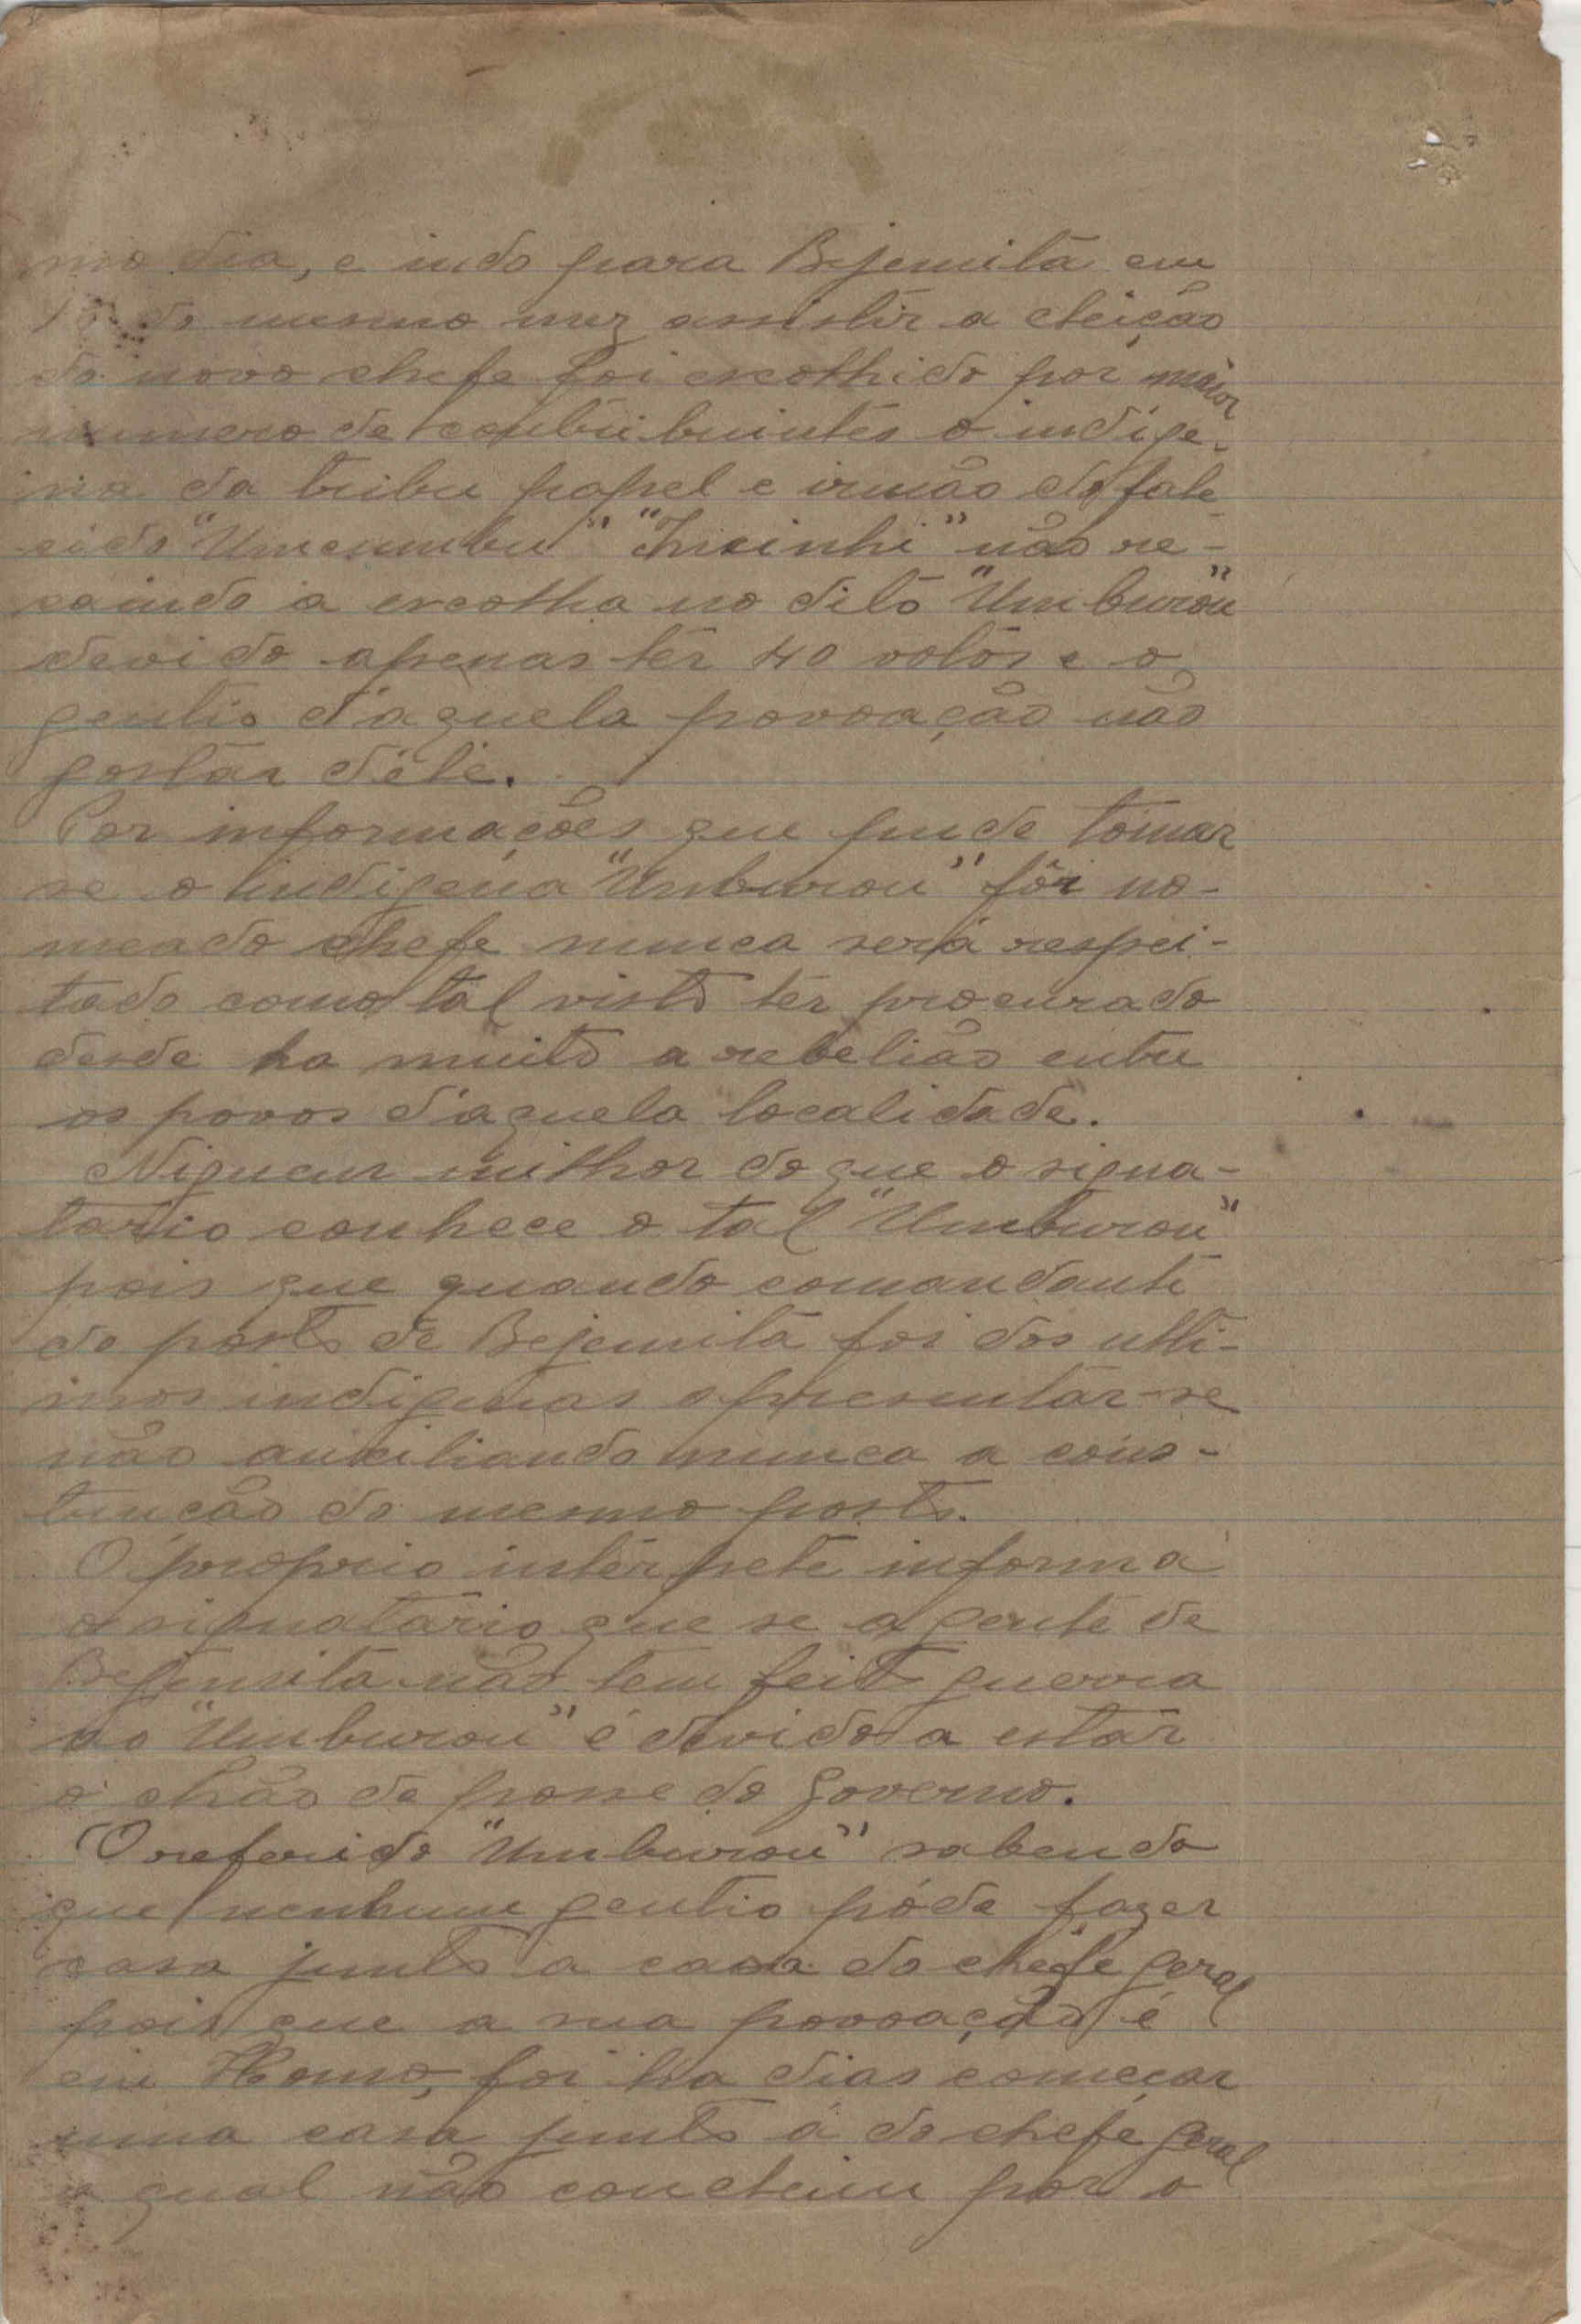 mo dia, e indo para Bejemitã em
do mesmo mez assistir a eleição
do novo chefe foi escolhido por maior
numero de contribuintes o indige-
na da tribu papel e irmão do fale-
cido "Umcumbu" não re-
caindo a escolha no dito "Umburou"
devido apenas ter 40 votos e o
gentio d'aquela povoação não
gostar d'éle.
Por informações que pude tomar
se o indigena "Umburou" fôr no-
meado chefe nunca será respei-
tado como tal visto ter procurado
desde ha muito a rebelião entre
os povos d'aquela localidade.
Niguem milhor do que o signa-
tario conhece o tal "Umburou"
pois que quando comandante
do posto de Bejemitã foi dos ulti-
mos indigenas apresentar-se
não auxiliando nunca a cons-
trução do mesmo posto.
O proprio interpete informa
o signatario que se a gente de
Bejemitã não tem feito guerra
ao "Umburou" é devido a estar
o chão de posse do governo.
O referido "Umburou" sabendo
que nenhum gentio póde fazer
casa junto a casa do chefe geral
pois que a sua povoação é
em foi ha dias começar
uma casa junto á do chefe geral
a qual não concluiu por o